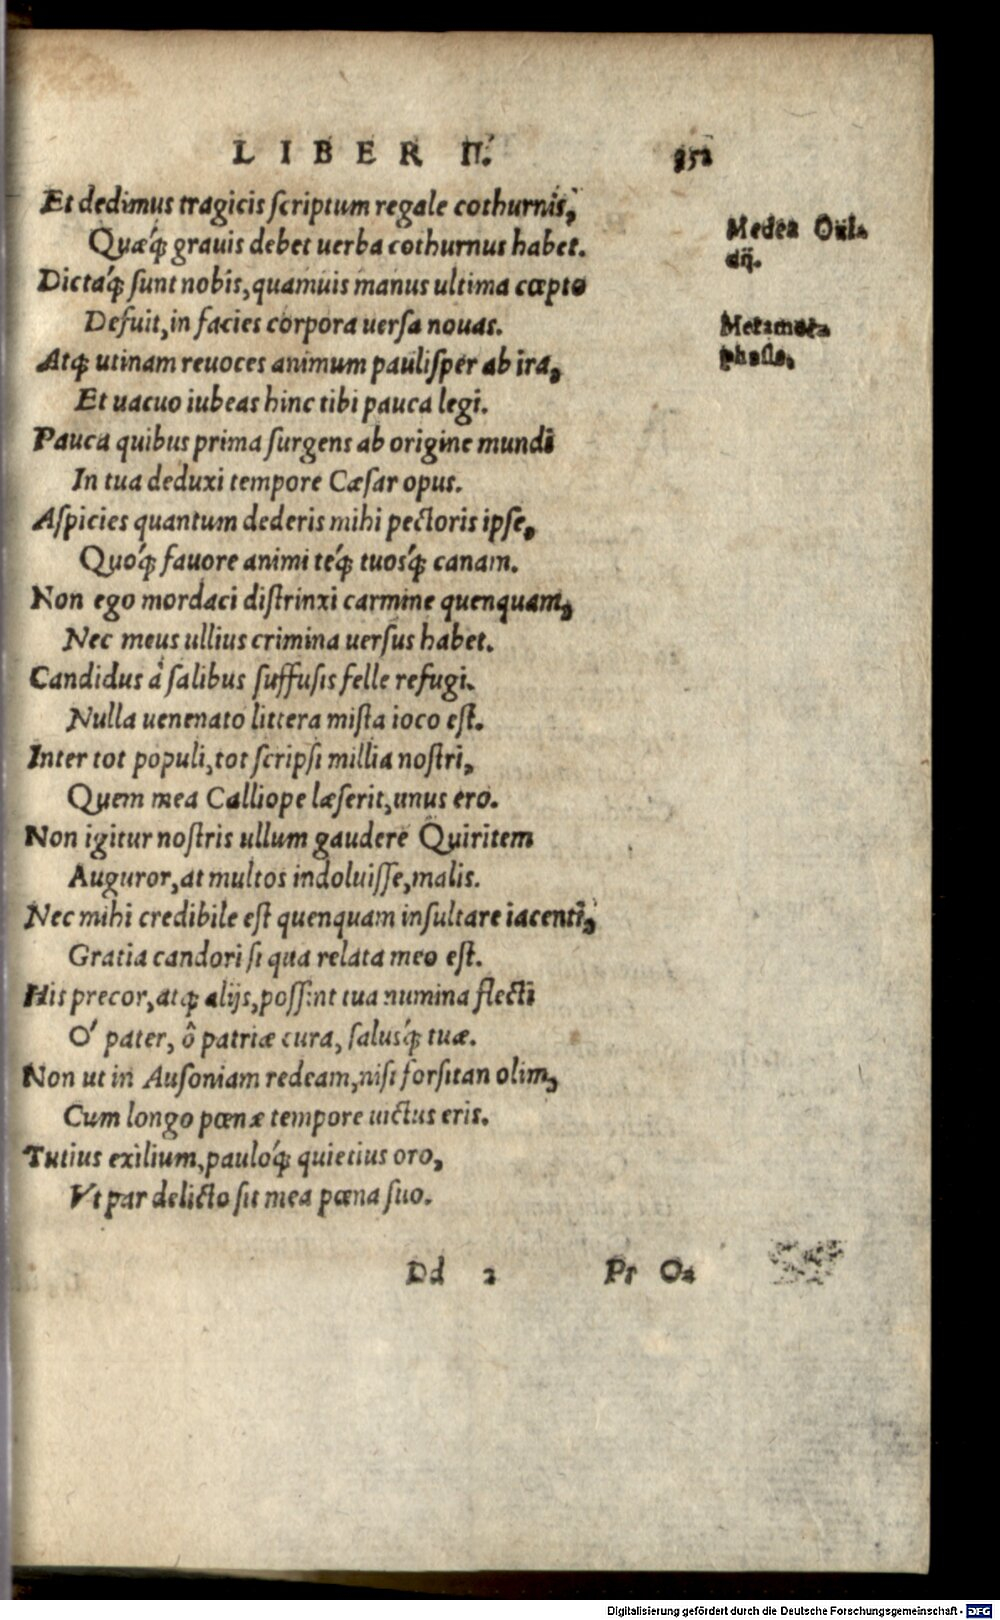 LIBER II.
Et dedimus tragicis ſcriptum regale cothurnis,
Medea Oui-
Quæq́ꝫ grauis debet uerba cothurnus habet.
dij.
Dictaq́ꝫ ſunt nobis, quamuis manus ultima cœpto
Defuit, in facies corpora uerſa nouas.
Metamor-
Atqꝫ utinam reuoces animum pauliſper ab ira,
phoſis.
Et uacuo iubeas hinc tibi pauca legi.
Pauca quibus prima ſurgens ab origine mundi
In tua deduxi tempore Cæſar opus.
Aſpicies quantum dederis mihi pectoris ipſe,
Quoq́ꝫ fauore animi teq́ꝫ tuosq́ꝫ canam.
Non ego mordaci diſtrinxi carmine quenquam,
Nec meus ullius crimina uerſus habet.
Candidus à ſalibus ſuffuſis felle refugi.
Nulla uenenato littera miſta ioco eſt.
Inter tot populi, tot ſcripſi millia noſtri,
Quem mea Calliope læſerit, unus ero.
Non igitur noſtris ullum gaudere Quiritem
Auguror, at multos indoluiſſe, malis.
Nec mihi credibile eſt quenquam inſultare iacenti,
Gratia candori ſi qua relata meo eſt.
His precor, atqꝫ alijs, poſſint tua numina flecti
O´ pater, ô patriæ cura, ſalusq́ꝫ tuæ.
Non ut in Auſoniam redeam, niſi forſitan olim,
Cum longo pœnæ tempore uictus eris.
Tutius exilium, pauloq́ꝫ quietius oro,
Vt par delicto ſit mea pœna ſuo.
Dd 2 Pr Oa
Digitalisierung gefördert durch die Deutsche Forschungsgemeinschaft - DFG